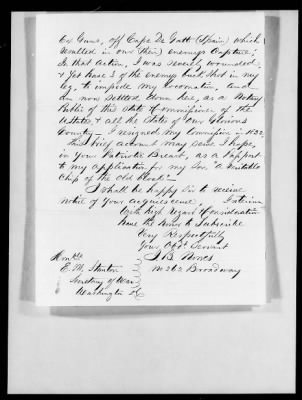 Ex Guns, off Cape De Gatt (Spain) which
resulted in our (then) enemys Capture;
In that Action, I was severely wounded,
& Yet have 3 of the enemys buck Shot in my
leg, to impede my locomotion, and
am now settled down here, as a Notary
Public of this State & Commissioner of the
States & all the States of Our Glorious
Country — I resigned my Commission in 1832,
this brief account may serve I hope,
in Your Patriotic Breast, as a Support
to my application for my Son, "a Suitable
Chip of the old Block"—
I shall be happy Sir to receive
notice of Your acquiescence, Interim
With high Regard & Consideration
have the honor to Subscribe
Very Respectfully
Your Obt. Servant
J. B. Nones
No 262 Broadway
Honble
E. M. Stanton
Secretary of War
Washington